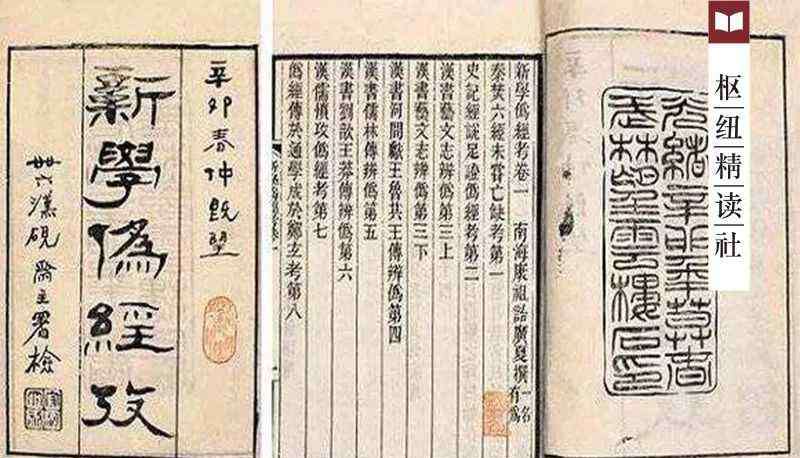 辛卯春仲既望
新學僞經攷
漢硯齋主署檢
新學僞經考卷一 南海康祖詒廣夏撰 一名有爲
秦焚六經未嘗亡缺考第一
史記經說足證僞經考第二
漢書藝文志辨僞第三上
漢書藝文志辨僞第三下
漢書河間獻王魯共王傳辨僞第四
漢書儒林傳辨僞第五
漢書劉歆王莽傳辨僞第六
漢儒憤攻僞經考第七
僞經傳於通學成於鄭玄考第八
光緒辛卯
武林望雲樓石印
枢纽精读社